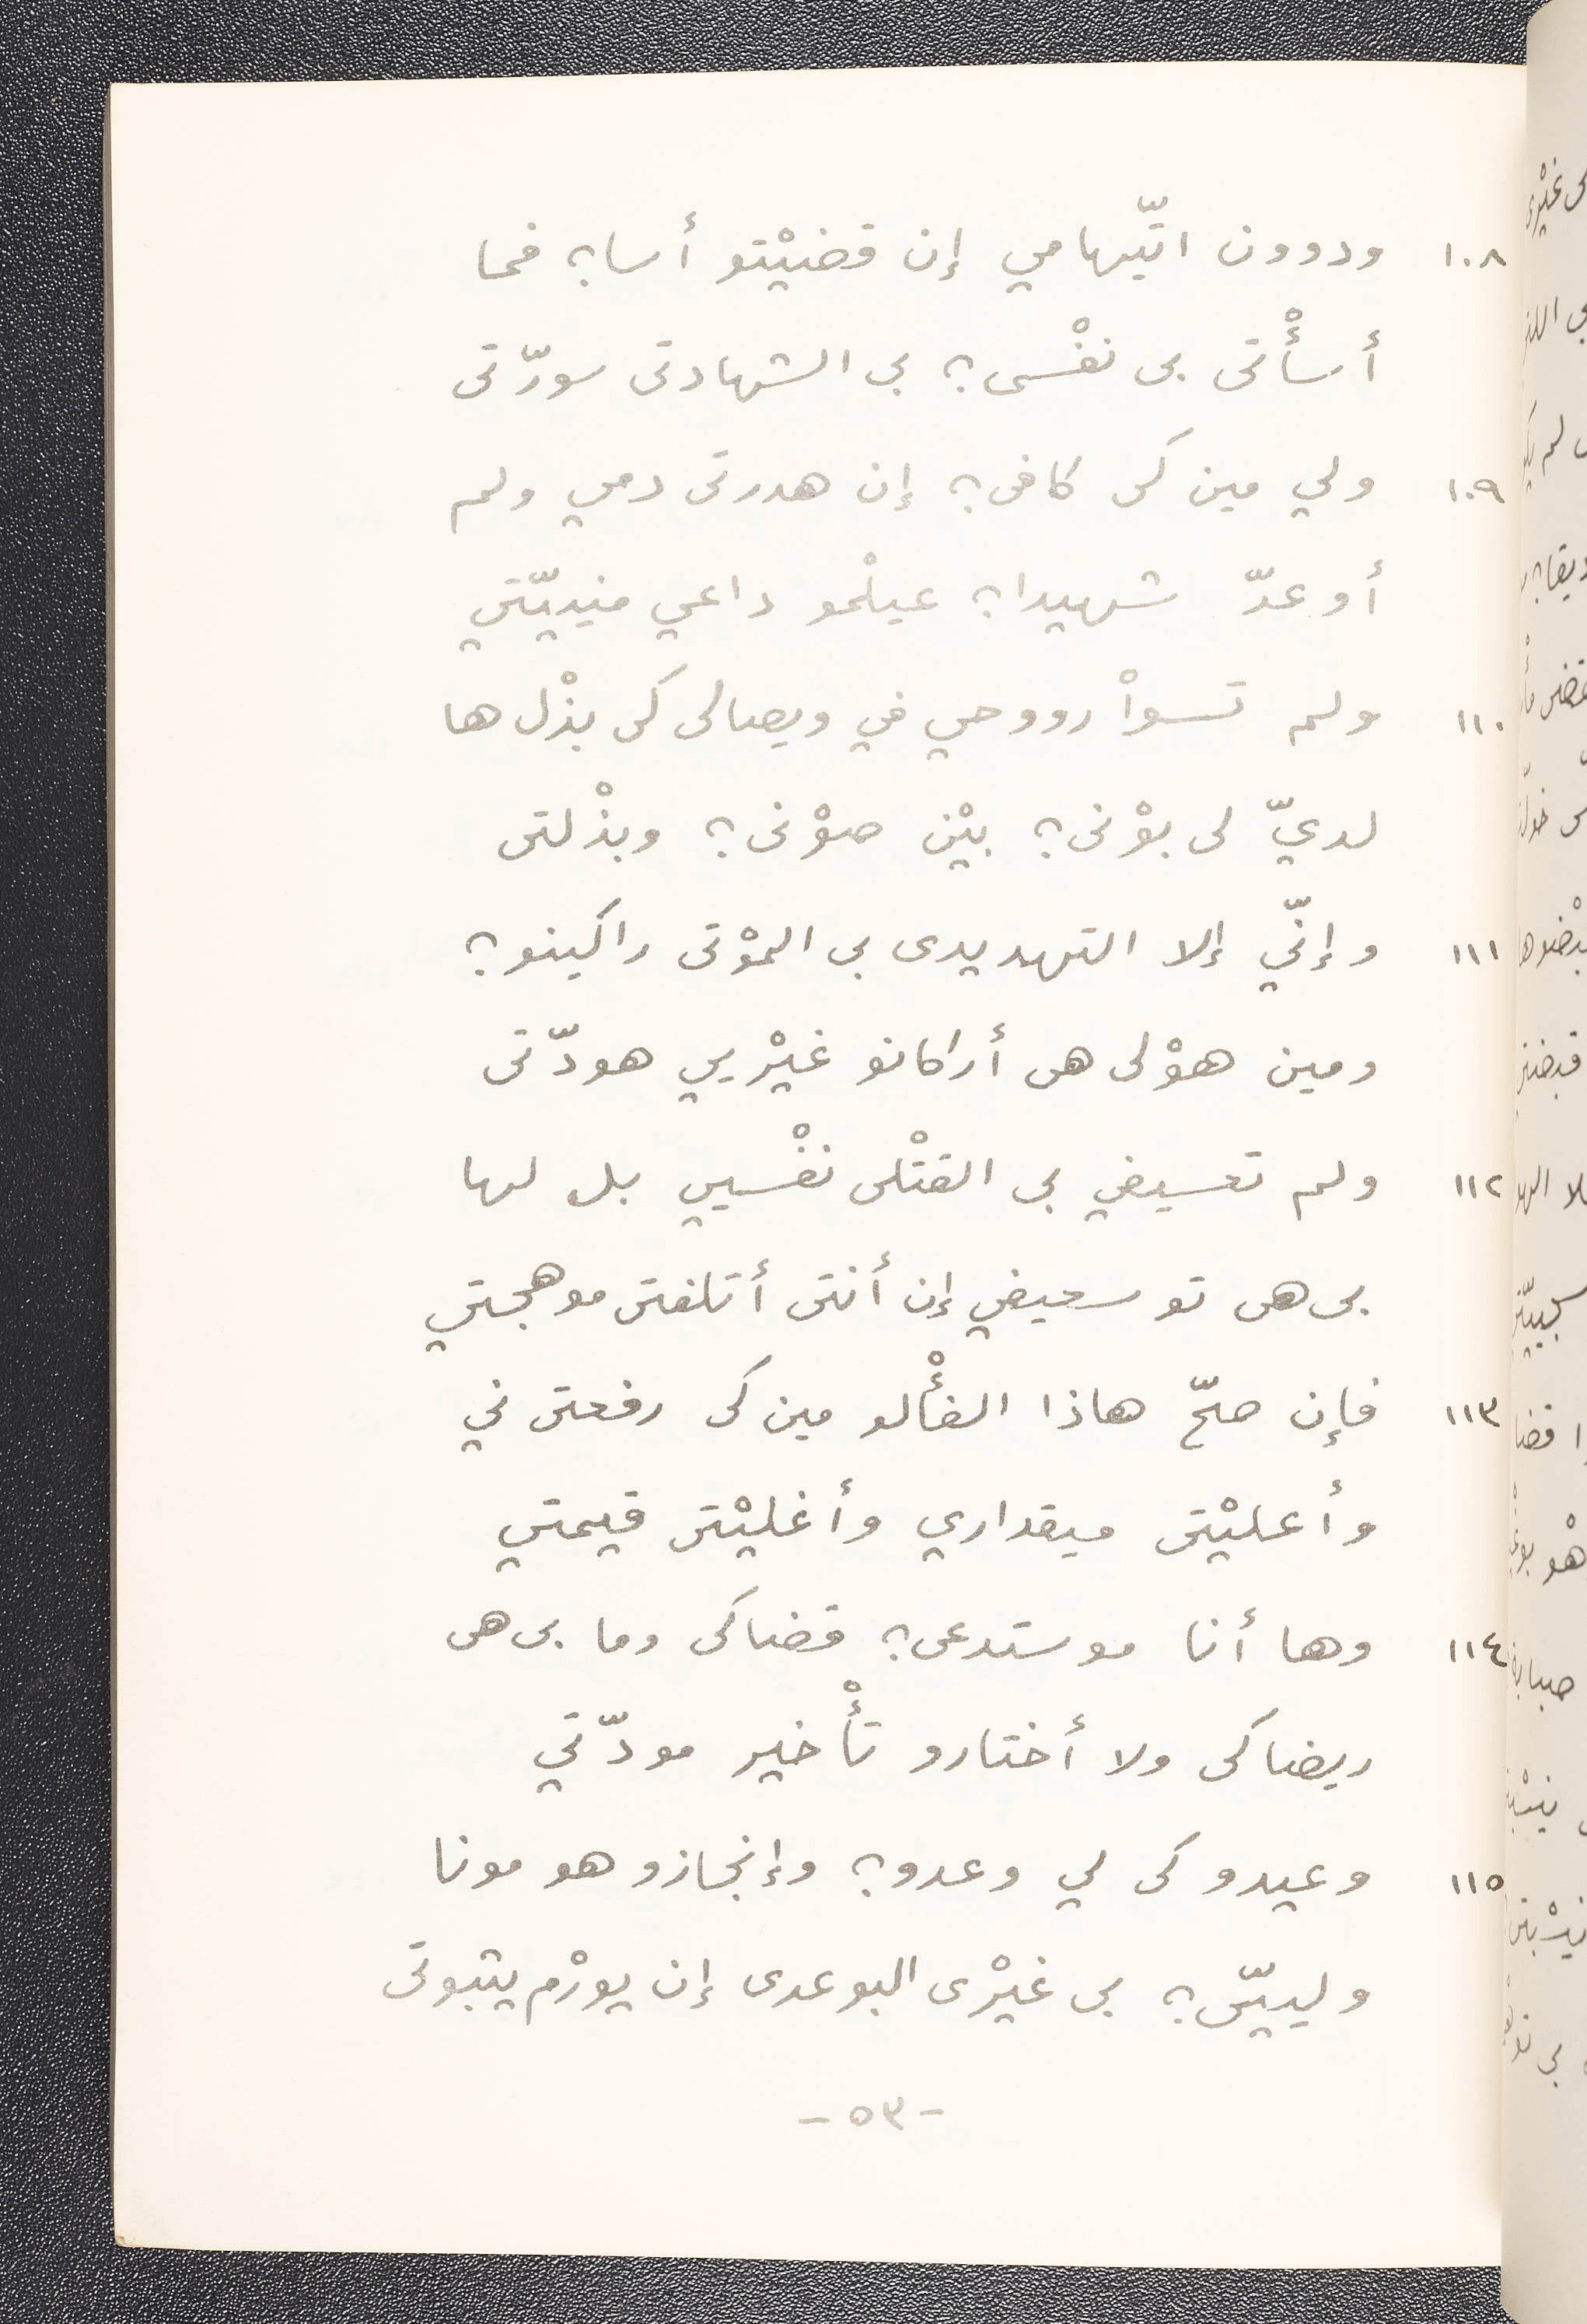 ١٠٨ ودوون اتّيهامي إن قضيْتو أسا؟ فما
أسأْتى بى نفْسى؟ بى الشهادتى سورّتى
١٠٩ ولي مين كى كافى؟ إن هدرتى دمي ولم
أوعدّ شهيدا؟ عيلْمو داعي منييّتي
١١٠ ولم تسواْ رووحي في ويصالى كى بذْل ها
لديّ لى بوْنى؟ بيْن صوْنى؟ وبذْلتى
١١١ وإنّي إلا التهديدى بى الموْتى راكينو؟
ومين هوْلى هى أراكانو غيْريي هودّتى
١١٢ ولم تعسيفي بى القتْلى نفْسيي بل لها
بى هى توسعيفي إن أنتى أتلفتى موهجتي
١١٣ فإن صحّ هاذا الفأْلو مين كى رفعتى ني
وأعليْتى ميقداري وأغليْتى قيمتي
١١٤ وها أنا موستدعى؟ قضاكى وما بى هى
ريضاكى ولا أختارو تأْخير مودّتي
١١٥ وعيدوكى لي وعدو؟ وإنجازو هو مونا
ولييّى؟ بى غيْرى البوعدى إن يورْم يثبوتى
- ٥٣ -